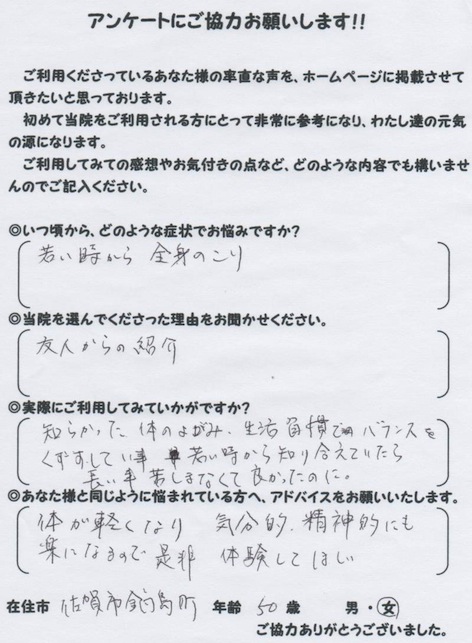 アンケートにご協力お願いします!!
ご利用くださっているあなた様の率直な声を、ホームページに掲載させて
頂きたいと思っております。
初めて当院をご利用される方にとって非常に参考になり、わたし達の元気
の源になります。
ご利用してみての感想やお気付きの点など、どのような内容でも構いませ
んのでご記入ください。
◎いつ頃から、どのような症状でお悩みですか?
若い時から 全身のこり
◎当院を選んでくださった理由をお聞かせください。
友人からの紹介
◎実際にご利用してみていかがですか?
知らなかった 体のゆがみ、生活習慣で バランスを
くずしてい事 若い時から知り合えていたら
長い事 苦しまなくて良かったのに。
◎あなた様と同じように悩まれている方へ、アドバイスをお願いいたします。
体が軽くなり 気分的、精神的にも
楽になるので 是非 体験してほしい
在住市 佐賀市 島町 年齢 50 歳 男・女
ご協力ありがとうございました。